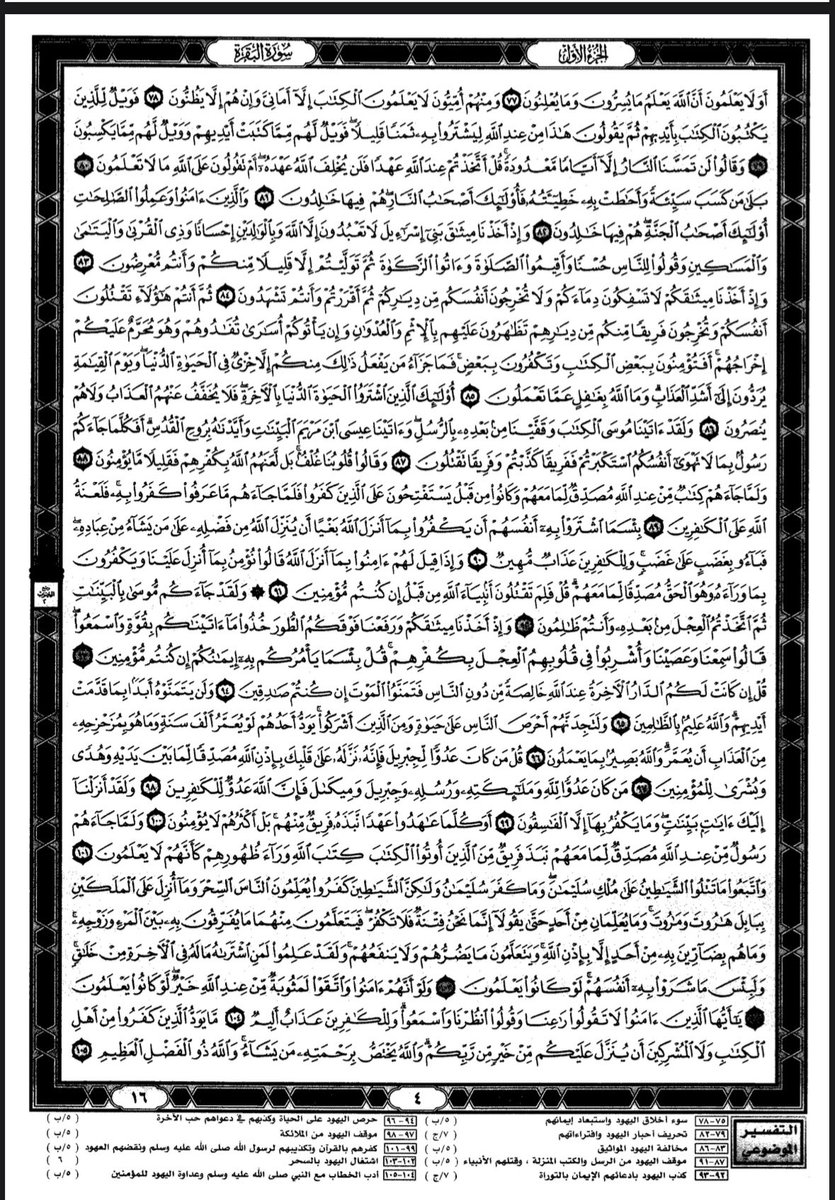 الجزء الأول
سورة البقرة
أَوَلَا يَعْلَمُونَ أَنَّ اللَّهَ يَعْلَمُ مَا يُسِرُّونَ وَمَا يُعْلِنُونَ ٧٧ وَمِنْهُمْ أُمِّيُّونَ لَا يَعْلَمُونَ الْكِتَابَ إِلَّا أَمَانِيَّ وَإِنْ هُمْ إِلَّا يَظُنُّونَ ٧٨ فَوَيْلٌ لِلَّذِينَ
يَكْتُبُونَ الْكِتَابَ بِأَيْدِيهِمْ ثُمَّ يَقُولُونَ هَذَا مِنْ عِنْدِ اللَّهِ لِيَشْتَرُوا بِهِ ثَمَنًا قَلِيلًا فَوَيْلٌ لَهُمْ مِمَّا كَتَبَتْ أَيْدِيهِمْ وَوَيْلٌ لَهُمْ مِمَّا يَكْسِبُونَ
٧٩ وَقَالُوا لَنْ تَمَسَّنَا النَّارُ إِلَّا أَيَّامًا مَعْدُودَةً قُلْ أَتَّخَذْتُمْ عِنْدَ اللَّهِ عَهْدًا فَلَنْ يُخْلِفَ اللَّهُ عَهْدَهُ أَمْ تَقُولُونَ عَلَى اللَّهِ مَا لَا تَعْلَمُونَ ٨٠
بَلَى مَنْ كَسَبَ سَيِّئَةً وَأَحَاطَتْ بِهِ خَطِيئَتُهُ فَأُولَئِكَ أَصْحَابُ النَّارِ هُمْ فِيهَا خَالِدُونَ ٨١ وَالَّذِينَ آمَنُوا وَعَمِلُوا الصَّالِحَاتِ
أُولَئِكَ أَصْحَابُ الْجَنَّةِ هُمْ فِيهَا خَالِدُونَ ٨٢ وَإِذْ أَخَذْنَا مِيثَاقَ بَنِي إِسْرَائِيلَ لَا تَعْبُدُونَ إِلَّا اللَّهَ وَبِالْوَالِدَيْنِ إِحْسَانًا وَذِي الْقُرْبَى وَالْيَتَامَى
وَالْمَسَاكِينِ وَقُولُوا لِلنَّاسِ حُسْنًا وَأَقِيمُوا الصَّلَاةَ وَآتُوا الزَّكَاةَ ثُمَّ تَوَلَّيْتُمْ إِلَّا قَلِيلًا مِنْكُمْ وَأَنْتُمْ مُعْرِضُونَ ٨٣
وَإِذْ أَخَذْنَا مِيثَاقَكُمْ لَا تَسْفِكُونَ دِمَاءَكُمْ وَلَا تُخْرِجُونَ أَنْفُسَكُمْ مِنْ دِيَارِكُمْ ثُمَّ أَقْرَرْتُمْ وَأَنْتُمْ تَشْهَدُونَ ٨٤ ثُمَّ أَنْتُمْ هَؤُلَاءِ تَقْتُلُونَ
أَنْفُسَكُمْ وَتُخْرِجُونَ فَرِيقًا مِنْكُمْ مِنْ دِيَارِهِمْ تَظَاهَرُونَ عَلَيْهِمْ بِالْإِثْمِ وَالْعُدْوَانِ وَإِنْ يَأْتُوكُمْ أُسَارَى تُفَادُوهُمْ وَهُوَ مُحَرَّمٌ عَلَيْكُمْ
إِخْرَاجُهُمْ أَفَتُؤْمِنُونَ بِبَعْضِ الْكِتَابِ وَتَكْفُرُونَ بِبَعْضٍ فَمَا جَزَاءُ مَنْ يَفْعَلُ ذَلِكَ مِنْكُمْ إِلَّا خِزْيٌ فِي الْحَيَاةِ الدُّنْيَا وَيَوْمَ الْقِيَامَةِ
يُرَدُّونَ إِلَى أَشَدِّ الْعَذَابِ وَمَا اللَّهُ بِغَافِلٍ عَمَّا تَعْمَلُونَ ٨٥ أُولَئِكَ الَّذِينَ اشْتَرَوُا الْحَيَاةَ الدُّنْيَا بِالْآخِرَةِ فَلَا يُخَفَّفُ عَنْهُمُ الْعَذَابُ وَلَا هُمْ
يُنْصَرُونَ ٨٦ وَلَقَدْ آتَيْنَا مُوسَى الْكِتَابَ وَقَفَّيْنَا مِنْ بَعْدِهِ بِالرُّسُلِ وَآتَيْنَا عِيسَى ابْنَ مَرْيَمَ الْبَيِّنَاتِ وَأَيَّدْنَاهُ بِرُوحِ الْقُدُسِ أَفَكُلَّمَا جَاءَكُمْ
رَسُولٌ بِمَا لَا تَهْوَى أَنْفُسُكُمُ اسْتَكْبَرْتُمْ فَفَرِيقًا كَذَّبْتُمْ وَفَرِيقًا تَقْتُلُونَ ٨٧ وَقَالُوا قُلُوبُنَا غُلْفٌ بَلْ لَعَنَهُمُ اللَّهُ بِكُفْرِهِمْ فَقَلِيلًا مَا يُؤْمِنُونَ ٨٨
وَلَمَّا جَاءَهُمْ كِتَابٌ مِنْ عِنْدِ اللَّهِ مُصَدِّقٌ لِمَا مَعَهُمْ وَكَانُوا مِنْ قَبْلُ يَسْتَفْتِحُونَ عَلَى الَّذِينَ كَفَرُوا فَلَمَّا جَاءَهُمْ مَا عَرَفُوا كَفَرُوا بِهِ فَلَعْنَةُ
اللَّهِ عَلَى الْكَافِرِينَ ٨٩ بِئْسَمَا اشْتَرَوْا بِهِ أَنْفُسَهُمْ أَنْ يَكْفُرُوا بِمَا أَنْزَلَ اللَّهُ بَغْيًا أَنْ يُنَزِّلَ اللَّهُ مِنْ فَضْلِهِ عَلَى مَنْ يَشَاءُ مِنْ عِبَادِهِ
فَبَاءُوا بِغَضَبٍ عَلَى غَضَبٍ وَلِلْكَافِرِينَ عَذَابٌ مُهِينٌ ٩٠ وَإِذَا قِيلَ لَهُمْ آمِنُوا بِمَا أَنْزَلَ اللَّهُ قَالُوا نُؤْمِنُ بِمَا أُنْزِلَ عَلَيْنَا وَيَكْفُرُونَ
بِمَا وَرَاءَهُ وَهُوَ الْحَقُّ مُصَدِّقًا لِمَا مَعَهُمْ قُلْ فَلِمَ تَقْتُلُونَ أَنْبِيَاءَ اللَّهِ مِنْ قَبْلُ إِنْ كُنْتُمْ مُؤْمِنِينَ ٩١ ۞ وَلَقَدْ جَاءَكُمْ مُوسَى بِالْبَيِّنَاتِ
ثُمَّ اتَّخَذْتُمُ الْعِجْلَ مِنْ بَعْدِهِ وَأَنْتُمْ ظَالِمُونَ ٩٢ وَإِذْ أَخَذْنَا مِيثَاقَكُمْ وَرَفَعْنَا فَوْقَكُمُ الطُّورَ خُذُوا مَا آتَيْنَاكُمْ بِقُوَّةٍ وَاسْمَعُوا
قَالُوا سَمِعْنَا وَعَصَيْنَا وَأُشْرِبُوا فِي قُلُوبِهِمُ الْعِجْلَ بِكُفْرِهِمْ قُلْ بِئْسَمَا يَأْمُرُكُمْ بِهِ إِيمَانُكُمْ إِنْ كُنْتُمْ مُؤْمِنِينَ ٩٣
قُلْ إِنْ كَانَتْ لَكُمُ الدَّارُ الْآخِرَةُ عِنْدَ اللَّهِ خَالِصَةً مِنْ دُونِ النَّاسِ فَتَمَنَّوُا الْمَوْتَ إِنْ كُنْتُمْ صَادِقِينَ ٩٤ وَلَنْ يَتَمَنَّوْهُ أَبَدًا بِمَا قَدَّمَتْ
أَيْدِيهِمْ وَاللَّهُ عَلِيمٌ بِالظَّالِمِينَ ٩٥ وَلَتَجِدَنَّهُمْ أَحْرَصَ النَّاسِ عَلَى حَيَاةٍ وَمِنَ الَّذِينَ أَشْرَكُوا يَوَدُّ أَحَدُهُمْ لَوْ يُعَمَّرُ أَلْفَ سَنَةٍ وَمَا هُوَ بِمُزَحْزِحِهِ
مِنَ الْعَذَابِ أَنْ يُعَمَّرَ وَاللَّهُ بَصِيرٌ بِمَا يَعْمَلُونَ ٩٦ قُلْ مَنْ كَانَ عَدُوًّا لِجِبْرِيلَ فَإِنَّهُ نَزَّلَهُ عَلَى قَلْبِكَ بِإِذْنِ اللَّهِ مُصَدِّقًا لِمَا بَيْنَ يَدَيْهِ وَهُدًى
وَبُشْرَى لِلْمُؤْمِنِينَ ٩٧ مَنْ كَانَ عَدُوًّا لِلَّهِ وَمَلَائِكَتِهِ وَرُسُلِهِ وَجِبْرِيلَ وَمِيكَالَ فَإِنَّ اللَّهَ عَدُوٌّ لِلْكَافِرِينَ ٩٨ وَلَقَدْ أَنْزَلْنَا
إِلَيْكَ آيَاتٍ بَيِّنَاتٍ وَمَا يَكْفُرُ بِهَا إِلَّا الْفَاسِقُونَ ٩٩ أَوَكُلَّمَا عَاهَدُوا عَهْدًا نَبَذَهُ فَرِيقٌ مِنْهُمْ بَلْ أَكْثَرُهُمْ لَا يُؤْمِنُونَ ١٠٠ وَلَمَّا جَاءَهُمْ
رَسُولٌ مِنْ عِنْدِ اللَّهِ مُصَدِّقٌ لِمَا مَعَهُمْ نَبَذَ فَرِيقٌ مِنَ الَّذِينَ أُوتُوا الْكِتَابَ كِتَابَ اللَّهِ وَرَاءَ ظُهُورِهِمْ كَأَنَّهُمْ لَا يَعْلَمُونَ ١٠١
وَاتَّبَعُوا مَا تَتْلُو الشَّيَاطِينُ عَلَى مُلْكِ سُلَيْمَانَ وَمَا كَفَرَ سُلَيْمَانُ وَلَكِنَّ الشَّيَاطِينَ كَفَرُوا يُعَلِّمُونَ النَّاسَ السِّحْرَ وَمَا أُنْزِلَ عَلَى الْمَلَكَيْنِ
بِبَابِلَ هَارُوتَ وَمَارُوتَ وَمَا يُعَلِّمَانِ مِنْ أَحَدٍ حَتَّى يَقُولَا إِنَّمَا نَحْنُ فِتْنَةٌ فَلَا تَكْفُرْ فَيَتَعَلَّمُونَ مِنْهُمَا مَا يُفَرِّقُونَ بِهِ بَيْنَ الْمَرْءِ وَزَوْجِهِ
وَمَا هُمْ بِضَارِّينَ بِهِ مِنْ أَحَدٍ إِلَّا بِإِذْنِ اللَّهِ وَيَتَعَلَّمُونَ مَا يَضُرُّهُمْ وَلَا يَنْفَعُهُمْ وَلَقَدْ عَلِمُوا لَمَنِ اشْتَرَاهُ مَا لَهُ فِي الْآخِرَةِ مِنْ خَلَاقٍ
وَلَبِئْسَ مَا شَرَوْا بِهِ أَنْفُسَهُمْ لَوْ كَانُوا يَعْلَمُونَ ١٠٢ وَلَوْ أَنَّهُمْ آمَنُوا وَاتَّقَوْا لَمَثُوبَةٌ مِنْ عِنْدِ اللَّهِ خَيْرٌ لَوْ كَانُوا يَعْلَمُونَ
١٠٣ يَا أَيُّهَا الَّذِينَ آمَنُوا لَا تَقُولُوا رَاعِنَا وَقُولُوا انْظُرْنَا وَاسْمَعُوا وَلِلْكَافِرِينَ عَذَابٌ أَلِيمٌ ١٠٤ مَا يَوَدُّ الَّذِينَ كَفَرُوا مِنْ أَهْلِ
الْكِتَابِ وَلَا الْمُشْرِكِينَ أَنْ يُنَزَّلَ عَلَيْكُمْ مِنْ خَيْرٍ مِنْ رَبِّكُمْ وَاللَّهُ يَخْتَصُّ بِرَحْمَتِهِ مَنْ يَشَاءُ وَاللَّهُ ذُو الْفَضْلِ الْعَظِيمِ ١٠٥
٤
١٦
التفسير الموضوعي
٧٥-٧٨ سوء أخلاق اليهود واستبعاد إيمانهم (٥/ب)
٧٩-٨٢ تحريف أحبار اليهود وافتراءاتهم (٧/ج)
٨٣-٨٦ مخالفة اليهود المواثيق (٥/ب)
٨٧-٩١ موقف اليهود من الرسل والكتب المنزلة ، وقتلهم الأنبياء (٥/ب)
٩٢-٩٣ كذب اليهود بادعائهم الإيمان بالتوراة (٧/ج)
٩٤-٩٦ حرص اليهود على الحياة وكذبهم في دعواهم حب الآخرة (٥/ب)
٩٧-٩٨ موقف اليهود من الملائكة (٥/ب)
٩٩-١٠١ كفرهم بالقرآن وتكذيبهم لرسول الله صلى الله عليه وسلم ونقضهم العهود (٥/ب)
١٠٢-١٠٣ اشتغال اليهود بالسحر (٦)
١٠٤-١٠٥ أدب الخطاب مع النبي صلى الله عليه وسلم وعداوة اليهود للمؤمنين (٥/ب)